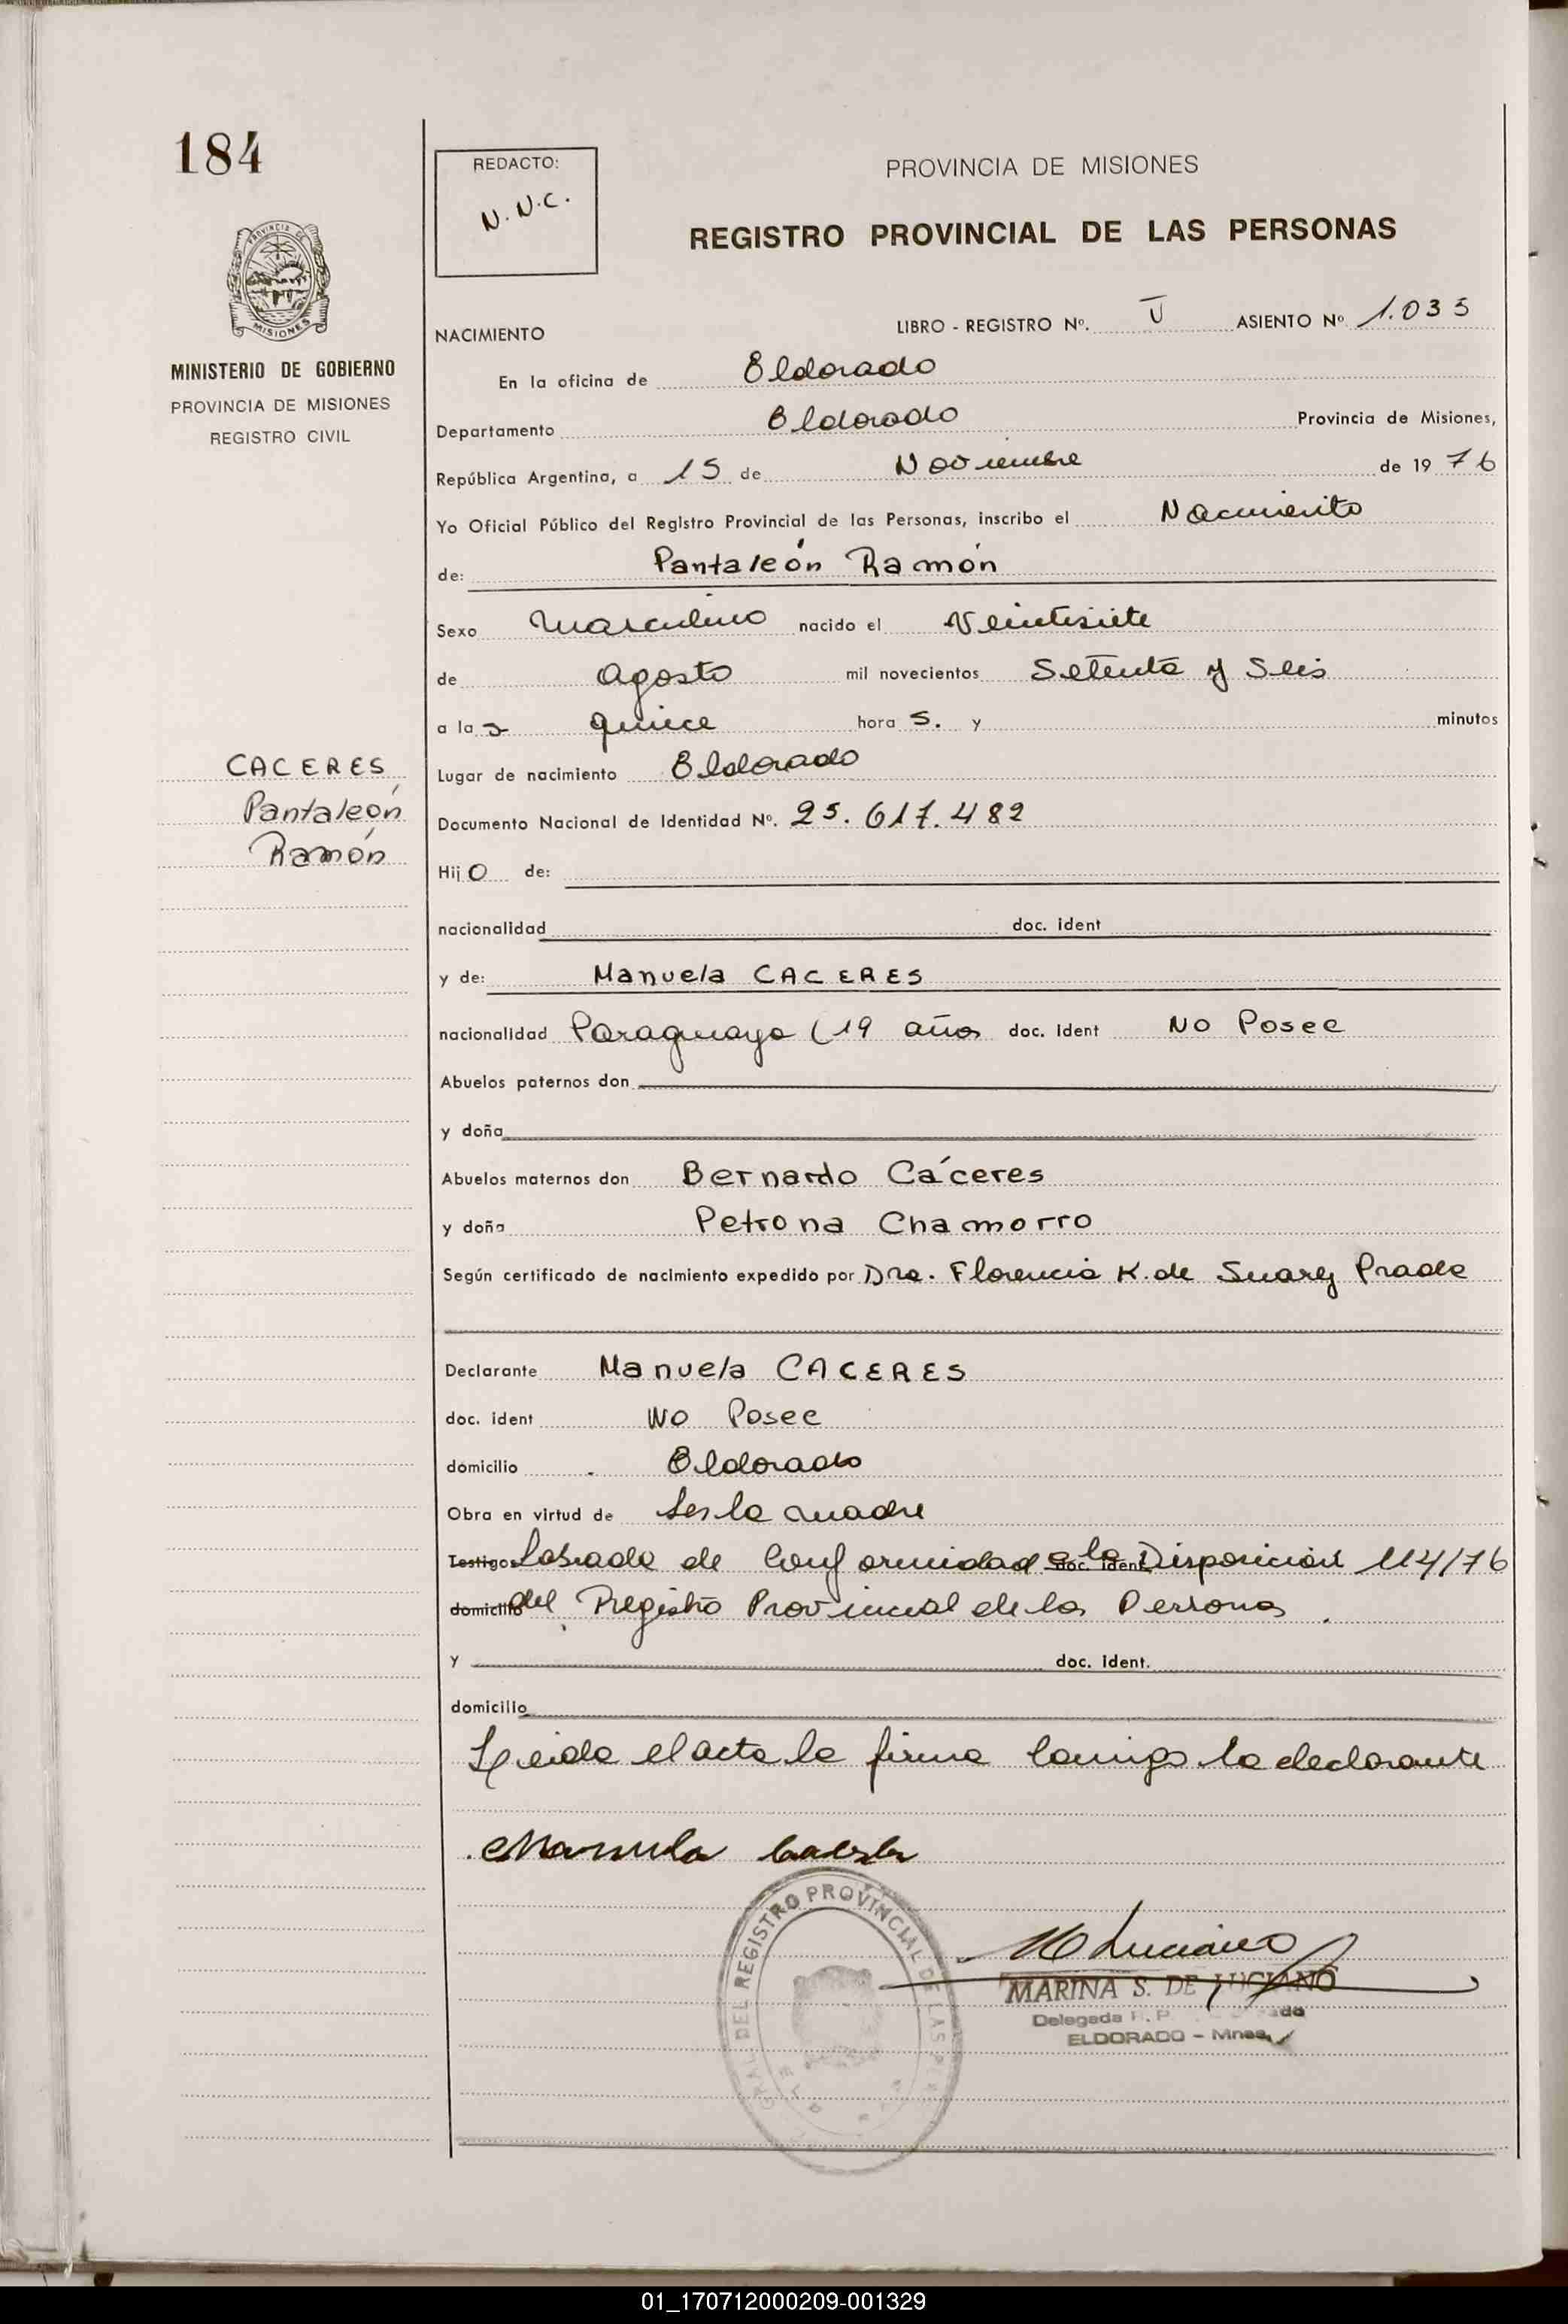 184
REDACTO:
N.N.C.
PROVINCIA DE MISIONES
REGISTRO PROVINCIAL DE LAS PERSONAS
PROVINCIA DE
MISIONES
MINISTERIO DE GOBIERNO
PROVINCIA DE MISIONES
REGISTRO CIVIL
NACIMIENTO LIBRO - REGISTRO Nº. U ASIENTO Nº 1.035
En la oficina de Eldorado
Departamento Eldorado Provincia de Misiones,
República Argentina, a 15 de Noviembre de 19 76
Yo Oficial Público del Registro Provincial de las Personas, inscribo el Nacimiento
de: Pantaleón Ramón
Sexo Masculino nacido el Veintisiete
de Agosto mil novecientos Setenta y Seis
a la s quince hora s. y minutos
CACERES
Pantaleón
Ramón
Lugar de nacimiento Eldorado
Documento Nacional de Identidad Nº. 25.617.482
Hij o de:
nacionalidad doc. ident
y de: Manuela CACERES
nacionalidad Paraguaya (19 años doc. ident No Posee
Abuelos paternos don
y doña
Abuelos maternos don Bernardo Cáceres
y doña Petrona Chamorro
Según certificado de nacimiento expedido por Dra. Florencia K. de Suarez Prada
Declarante Manuela CACERES
doc. ident No Posee
domicilio Eldorado
Obra en virtud de Ser la madre
Testigos Labrada de Conformidad a la doc. ident Disposición 114/76
domicilio del Registro Provincial de las Personas
y doc. ident.
domicilio
Leida el acta la firma conmigo la declarante
Manuela
GRAL. DEL REGISTRO PROVINCIAL DE LAS PER
M Luciano
MARINA S. DE LUCIANO
Delegada R. P.
ELDORADO - Mnes.
01_170712000209-001329